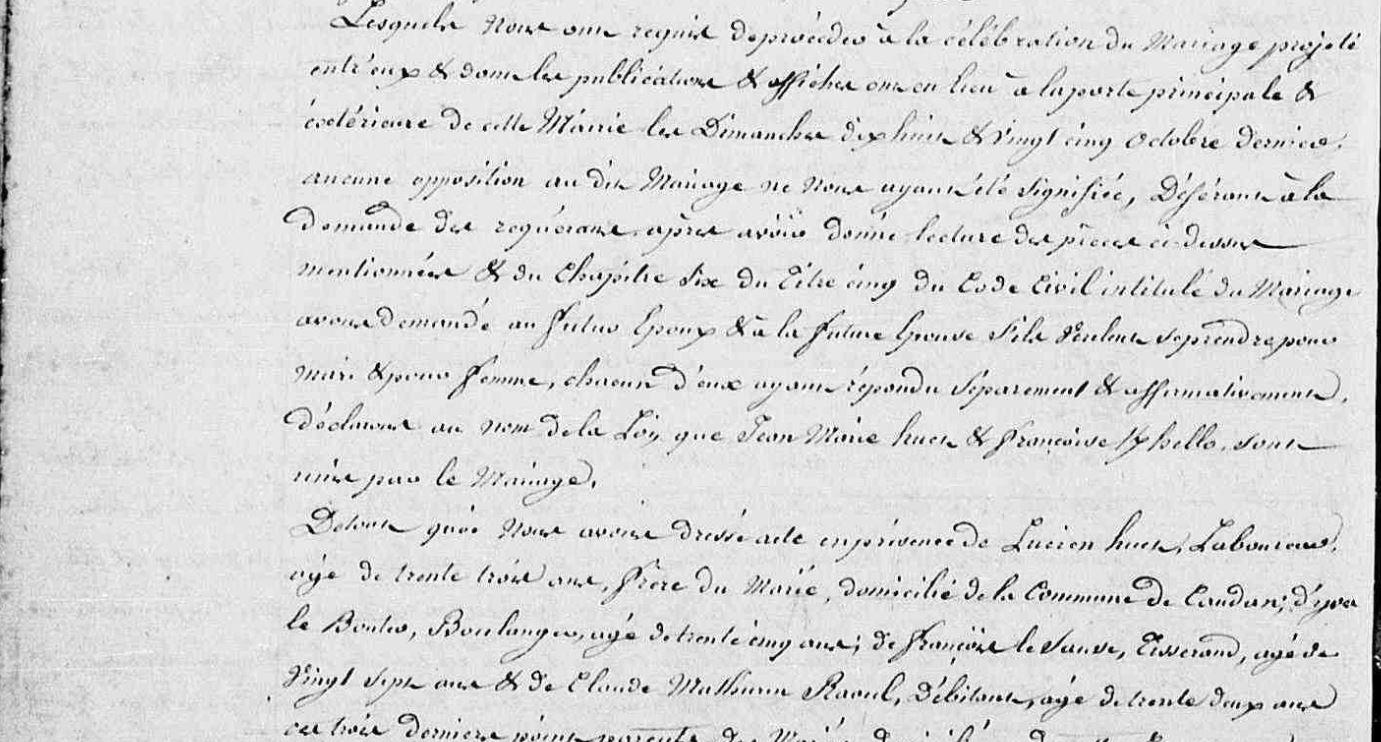 Lesquels Nous ont requis de procéder à la célébration du Mariage projeté
entr'eux & dont les publications & affiches ont eu lieu à la porte principale &
éxtérieure de cette Mairie les Dimanches dix huit & vingt cinq Octobre dernier.
aucune opposition au dit Mariage ne Nous ayant été signifiée, Déférant à la
demande des requérans, après avoir donné lecture des pièces ci-dessus
mentionnées & du Chapitre Six du Titre cinq du Code Civil intitulé du Mariage
avons demandé au futur Epoux & à la future Epouse s'ils veulent se prendre pour
mari & pour femme, chacun d'eux ayant répondu séparement & affirmativement,
déclarons au nom de la Loi, que Jean Marie huet & françoise hello, sont
unis par le Mariage.
De tout quoi Nous avons dressé acte en présence de Lucien huet, Laboureur,
agé de trente trois ans, frère du Marié, domicilié de la Commune de Caudan; d'yves
le Bouter, Boulanger, agé de trente cinq ans; de françois le Sause, Tisserand, agé de
Vingt Sept ans & de Claude Mathurin Raoul, Débitant, agé de trente deux ans
ces trois derniers point parents du Marié